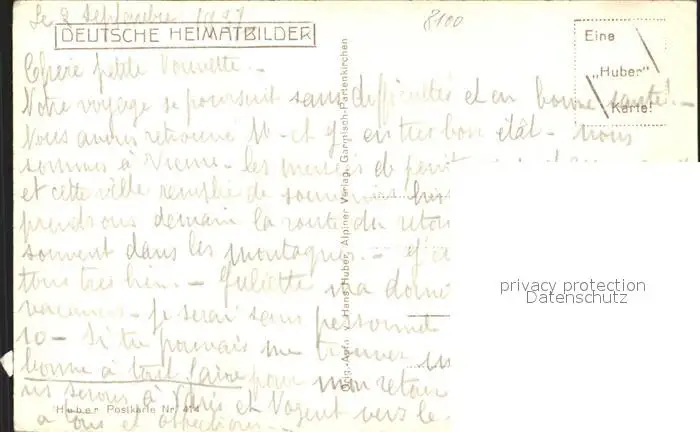 Le 2 Septembre 1937
8100
DEUTSCHE HEIMATBILDER
Eine
„Huber"
Karte!
Chère petite
Notre voyage se poursuit sans difficultés et en bonne santé! -
Nous avons retrouvé M. et en très bon état - nous
sommes à Vienne - les musées de
et cette ville remplie de souvenirs
prendrons demain la route du retour
souvent dans les montagnes. -
tous très bien. - Juliette m'a donné
vacances - je serai sans personne
10 - Si tu pouvais me trouver
bonne à tout faire pour mon retour
serons à Paris et Nogent vers le
Huber Postkarte Nr. 414
à tous et affections. -
Orig.-Aufn. v. Hans Huber, Alpiner Verlag, Garmisch-Partenkirchen
privacy protection
Datenschutz